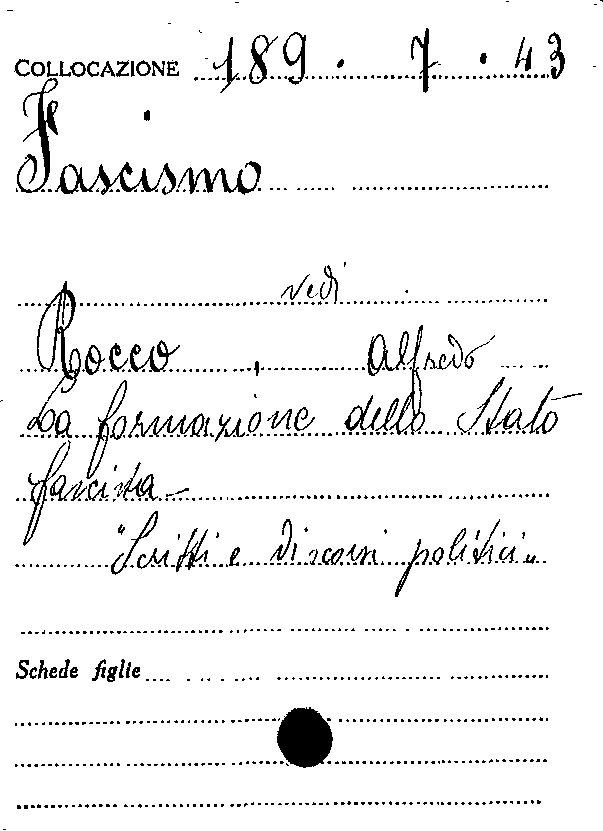 COLLOCAZIONE 189 . 7 . 43
Fascismo
vedi
Rocco , Alfredo
La formazione dello Stato
fascista -
"Scritti e discorsi politici"
Schede figlie